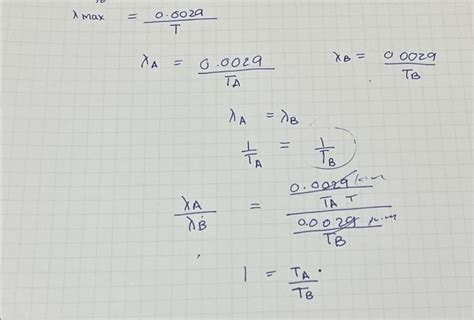 λmax = 0.0029 / T
λA = 0.0029 / TA    λB = 0.0029 / TB
λA = λB
1 / TA = 1 / TB
λA / λB = (0.0029 / TA T) / (0.0029 / TB)
1 = TA / TB